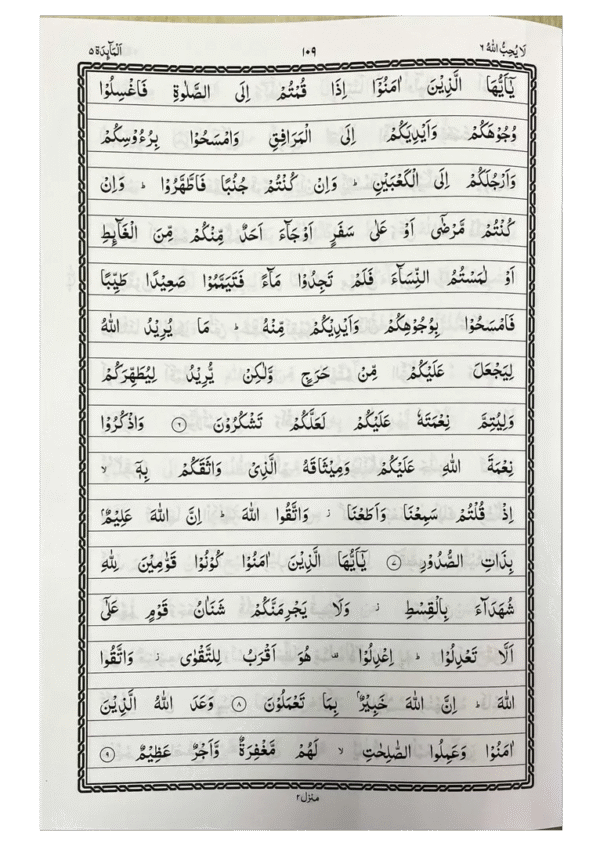 لَا يُحِبُّ اللّٰهُ ٦ ١٠٩ اَلْمَآئِدَة ٥
يٰۤاَيُّهَا الَّذِيْنَ اٰمَنُوْۤا اِذَا قُمْتُمْ اِلَى الصَّلٰوةِ فَاغْسِلُوْا
وُجُوْهَكُمْ وَاَيْدِيَكُمْ اِلَى الْمَرَافِقِ وَامْسَحُوْا بِرُءُوْسِكُمْ
وَاَرْجُلَكُمْ اِلَى الْكَعْبَيْنِ ؕ وَاِنْ كُنْتُمْ جُنُبًا فَاطَّهَّرُوْا ؕ وَاِنْ
كُنْتُمْ مَّرْضٰۤى اَوْ عَلٰى سَفَرٍ اَوْجَآءَ اَحَدٌ مِّنْكُمْ مِّنَ الْغَآئِطِ
اَوْ لٰمَسْتُمُ النِّسَآءَ فَلَمْ تَجِدُوْا مَآءً فَتَيَمَّمُوْا صَعِيْدًا طَيِّبًا
فَامْسَحُوْا بِوُجُوْهِكُمْ وَاَيْدِيْكُمْ مِّنْهُ ؕ مَا يُرِيْدُ اللّٰهُ
لِيَجْعَلَ عَلَيْكُمْ مِّنْ حَرَجٍ وَّلٰكِنْ يُّرِيْدُ لِيُطَهِّرَكُمْ
وَلِيُتِمَّ نِعْمَتَهٗ عَلَيْكُمْ لَعَلَّكُمْ تَشْكُرُوْنَ ۝٦ وَاذْكُرُوْا
نِعْمَةَ اللّٰهِ عَلَيْكُمْ وَمِيْثَاقَهُ الَّذِيْ وَاثَقَكُمْ بِهٖۤ ۙ
اِذْ قُلْتُمْ سَمِعْنَا وَاَطَعْنَا ز وَاتَّقُوا اللّٰهَ ؕ اِنَّ اللّٰهَ عَلِيْمٌۢ
بِذَاتِ الصُّدُوْرِ ۝٧ يٰۤاَيُّهَا الَّذِيْنَ اٰمَنُوْا كُوْنُوْا قَوّٰمِيْنَ لِلّٰهِ
شُهَدَآءَ بِالْقِسْطِ ز وَلَا يَجْرِمَنَّكُمْ شَنَاٰنُ قَوْمٍ عَلٰۤى
اَلَّا تَعْدِلُوْا ؕ اِعْدِلُوْا ۟ هُوَ اَقْرَبُ لِلتَّقْوٰى ز وَاتَّقُوا
اللّٰهَ ؕ اِنَّ اللّٰهَ خَبِيْرٌۢ بِمَا تَعْمَلُوْنَ ۝٨ وَعَدَ اللّٰهُ الَّذِيْنَ
اٰمَنُوْا وَعَمِلُوا الصّٰلِحٰتِ ۙ لَهُمْ مَّغْفِرَةٌ وَّاَجْرٌ عَظِيْمٌ ۝٩
منزل ٢